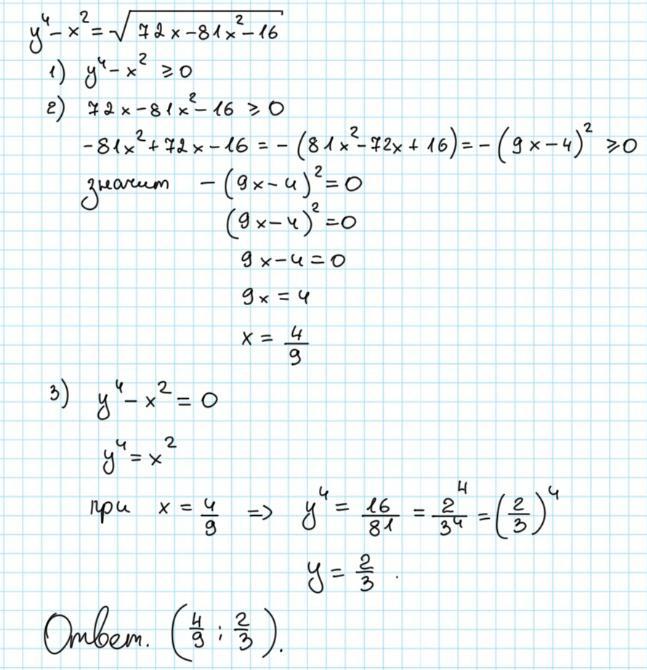 y⁴ − x² = √(72x − 81x² − 16)
1) y⁴ − x² ≥ 0
2) 72x − 81x² − 16 ≥ 0
−81x² + 72x − 16 = −(81x² − 72x + 16) = −(9x − 4)² ≥ 0
значит −(9x − 4)² = 0
(9x − 4)² = 0
9x − 4 = 0
9x = 4
x = 4/9
3) y⁴ − x² = 0
y⁴ = x²
при x = 4/9 => y⁴ = 16/81 = 2⁴/3⁴ = (2/3)⁴
y = 2/3.
Ответ. (4/9 ; 2/3).